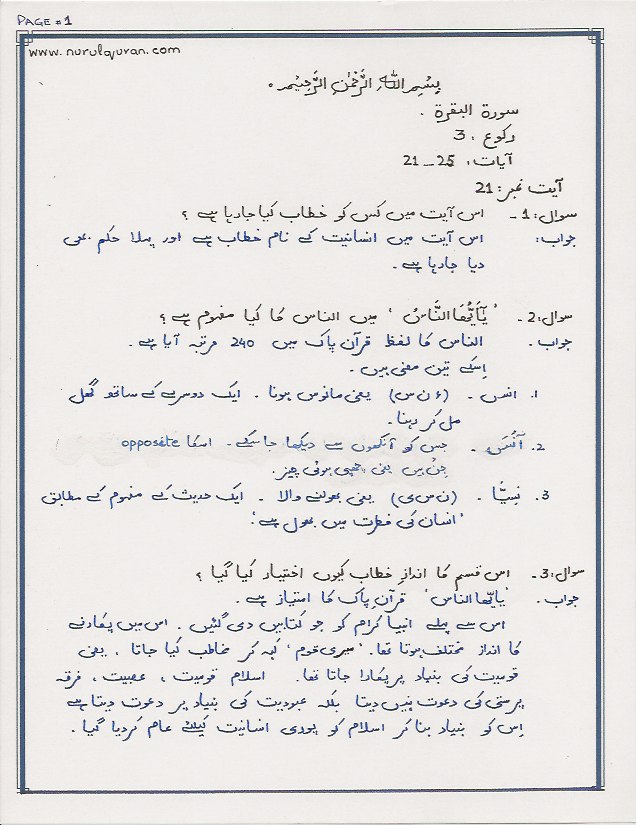 PAGE # 1
www.nurulquran.com
بِسْمِ اللّٰہِ الرَّحْمٰنِ الرَّحِیْمِ .
سورۃ البقرۃ .
رکوع : 3
آیات : 21 – 25
آیت نمبر : 21
سوال : 1 - اس آیت میں کس کو خطاب کیا جا رہا ہے ؟
جواب : اس آیت میں انسانیت کے نام خطاب ہے اور پہلا حکم بھی
دیا جا رہا ہے ۔
سوال : 2 - 'یٰٓاَیُّھَا النَّاسُ' میں الناس کا کیا مفہوم ہے ؟
جواب . الناس کا لفظ قرآن پاک میں 240 مرتبہ آیا ہے ۔
اِسکے تین معنی ہیں ۔
1. انس ۔ (ء ن س) یعنی مانوس ہونا ۔ ایک دوسرے کے ساتھ گھل
مل کر رہنا ۔
2. آنَسَ ۔ جس کو آنکھوں سے دیکھا جا سکے ۔ اسکا opposite
جِن ہیں یعنی چھپی ہوئی چیز ۔
3. نِسِیًّا ۔ (ن س ی) یعنی بھولنے والا ۔ ایک حدیث کے مفہوم کے مطابق
'انسان کی فطرت میں بھول ہے'
سوال : 3 - اس قسم کا اندازِ خطاب کیوں اختیار کیا گیا ؟
جواب . 'یایھا الناس' قرآنِ پاک کا امتیاز ہے ۔
اس سے پہلے انبیا کرام کو جو کتابیں دی گئیں ۔ اس میں پکارنے
کا انداز مختلف ہوتا تھا ۔ 'میری قوم' کہہ کر مخاطب کیا جاتا ، یعنی
قومیت کی بنیاد پر پکارا جاتا تھا ۔ اسلام قومیت ، عصبیت ، فرقہ
پرستی کی دعوت نہیں دیتا بلکہ عبودیت کی بنیاد پر دعوت دیتا ہے
اِس کو بنیاد بنا کر اسلام کو پوری انسانیت کیلئے عام کر دیا گیا ۔